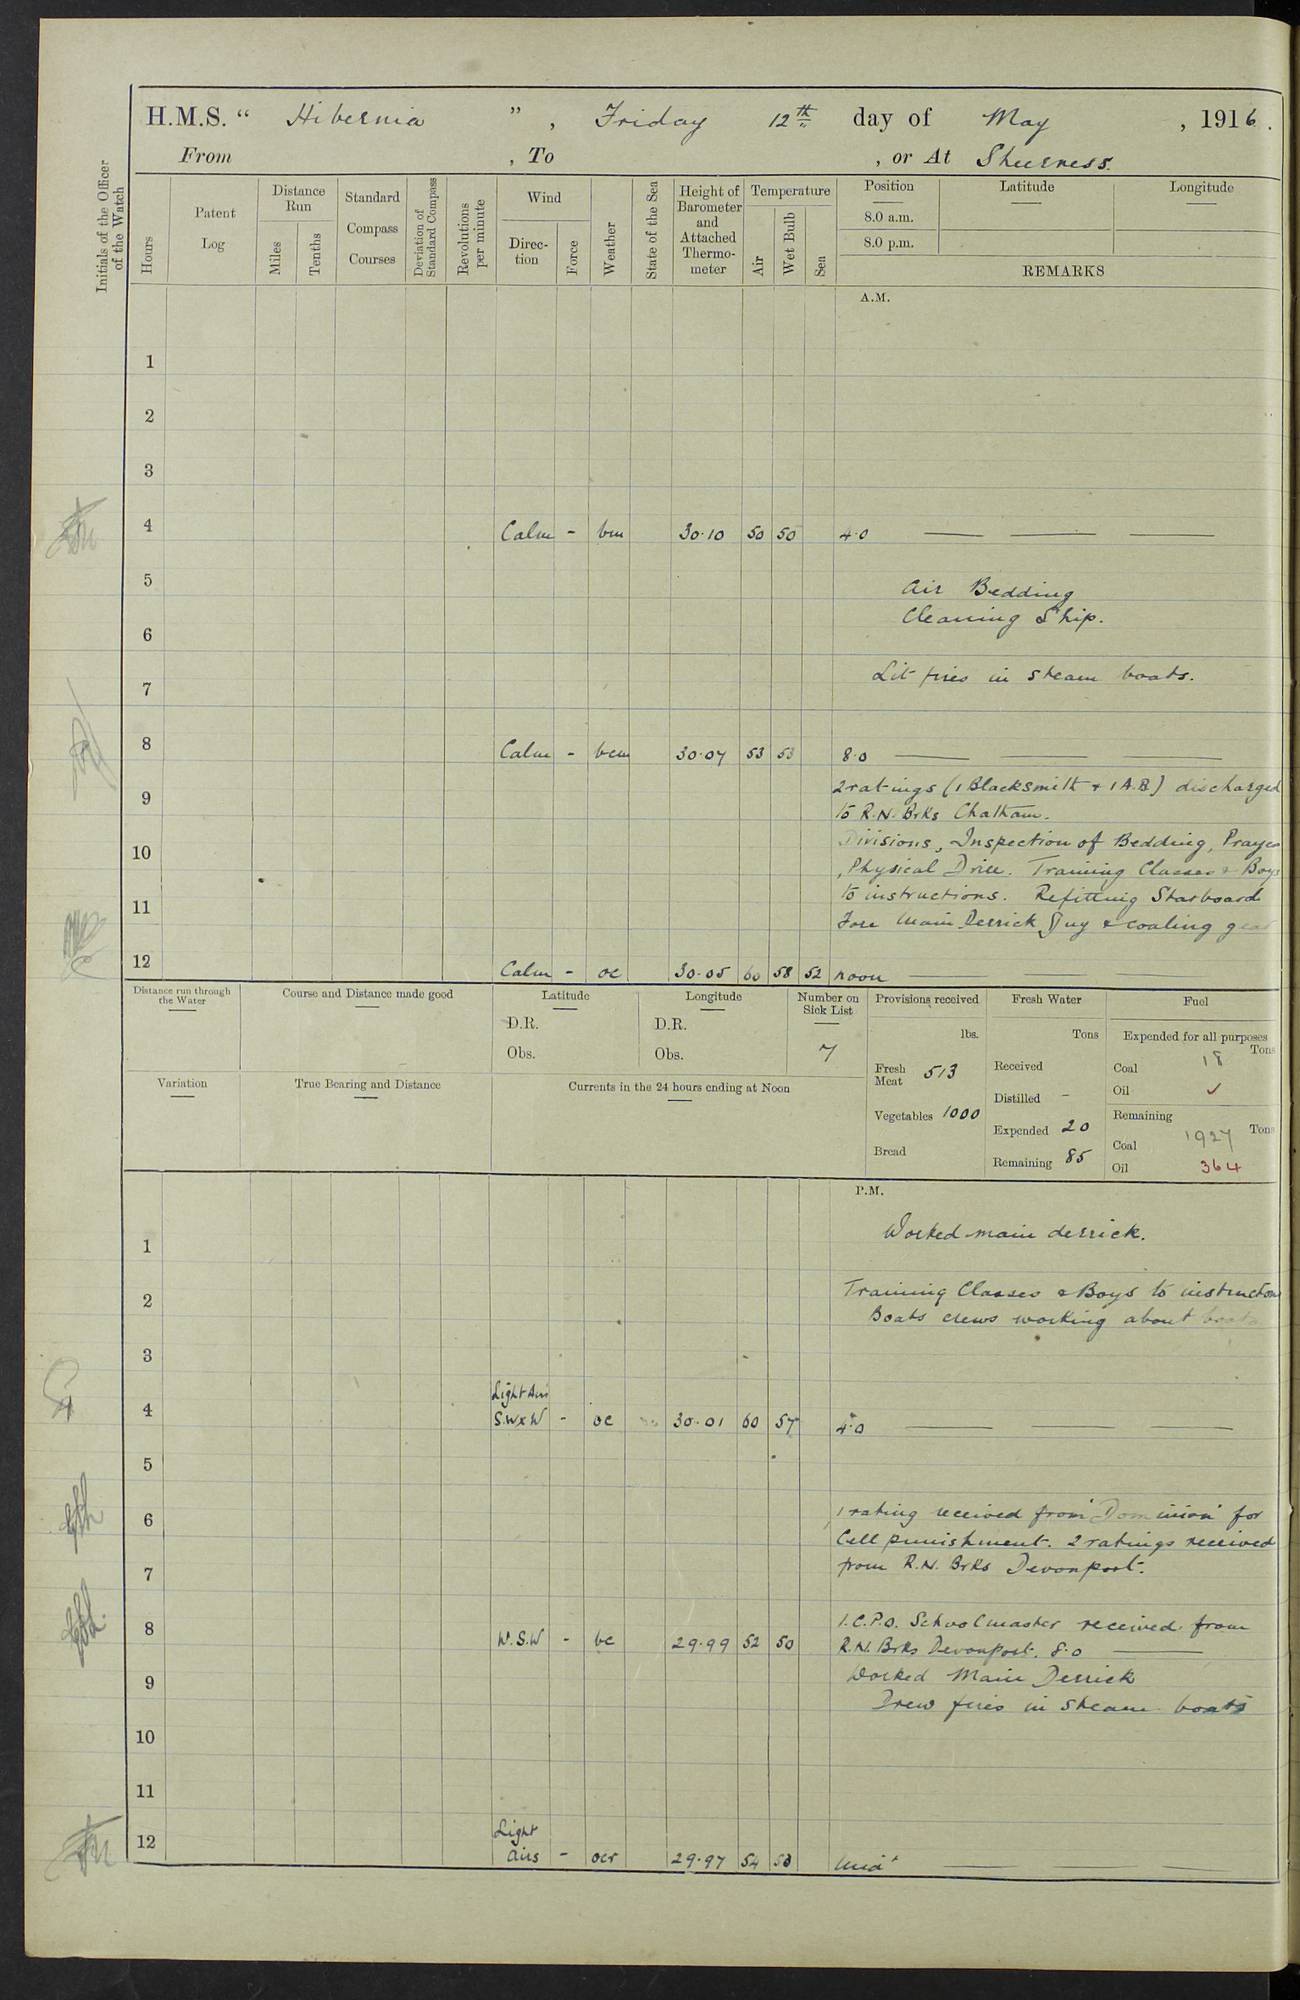 H.M.S. “ Hibernia ” , Friday 12th day of May , 1916.
From , To , or At Sheerness.
Initials of the Officer of the Watch
Hours
Patent Log
Distance Run
Miles
Tenths
Standard Compass Courses
Deviation of Standard Compass
Revolutions per minute
Wind
Direc-tion
Force
Weather
State of the Sea
Height of Barometer and Attached Thermo-meter
Temperature
Air
Wet Bulb
Sea
Position
Latitude
Longitude
8.0 a.m.
8.0 p.m.
REMARKS
A.M.
1
2
3
4 Calm - bm 30·10 50 50 4·0
5
Air Bedding
Cleaning Ship.
6
Lit fires in steam boats.
7
8 Calm - bcm 30·07 53 53 8·0
2 ratings (1 Blacksmith + 1 A.B) discharged
9
to R.N. Brks Chatham.
Divisions, Inspection of Bedding, Prayers
10
, Physical Drill. Training Classes & Boys
to instructions. Refitting Starboard
11
Fore Main Derrick Guy & coaling gear
12 Calm - oc 30·05 60 58 52 noon
Distance run through the Water
Course and Distance made good
Latitude
D.R.
Obs.
Longitude
D.R.
Obs.
Number on Sick List
7
Variation
True Bearing and Distance
Currents in the 24 hours ending at Noon
Provisions received
lbs.
Fresh Meat 513
Vegetables 1000
Bread
Fresh Water
Tons
Received
Distilled -
Expended 20
Remaining 85
Fuel
Expended for all purposes
Tons
Coal 18
Oil ✓
Remaining
Tons
Coal 1927
Oil 364
P.M.
Worked main derrick.
1
Training Classes & Boys to instructions
2
Boats crews working about boats
3
Light Airs
4 S.W x W - oc 30·01 60 57 4·0
5
1 rating received from 'Dominion' for
6
Cell punishment. 2 ratings received
from R.N. Brks Devonport.
7
1. C.P.O. Schoolmaster received from
8 W.S.W - bc 29·99 52 50 R.N. Brks Devonport. 8·0
Worked Main Derrick
9
Drew fires in steam boats
10
11
Light
12 Airs - ocr 29·97 54 53 Mid't